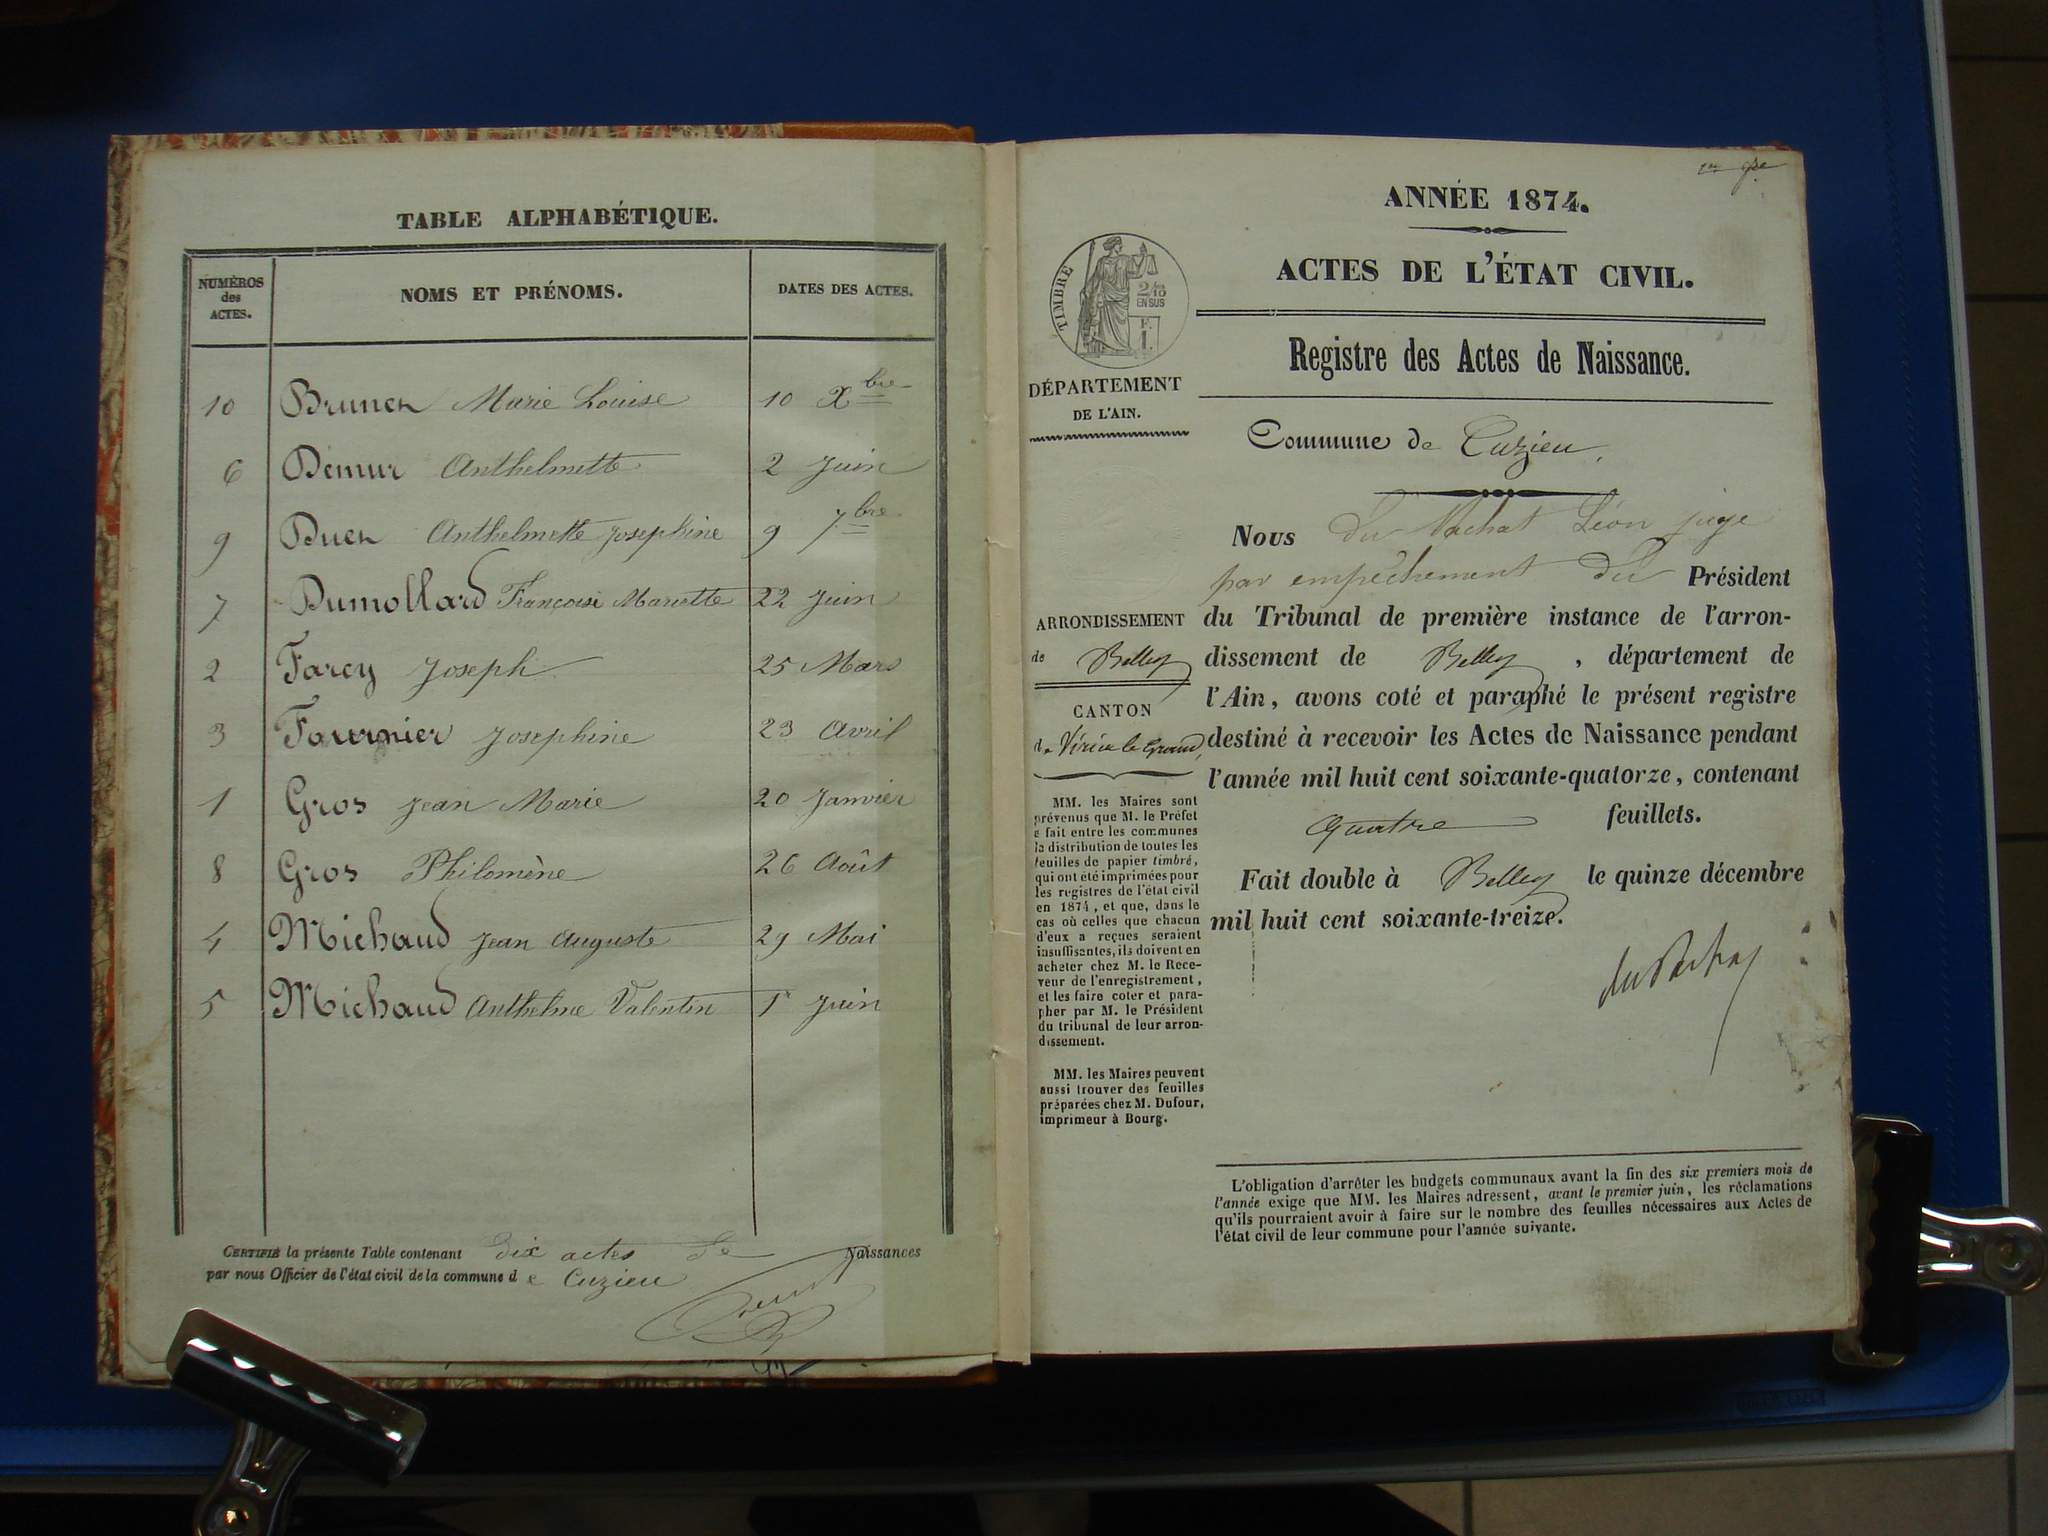 TABLE ALPHABÉTIQUE.
NUMÉROS des ACTES. NOMS ET PRÉNOMS. DATES DES ACTES.
10 Brunet Marie Louise 10 Xbre
6 Demur Anthelmette 2 Juin
9 Duet Anthelmette Josephine 9 7bre
7 Dumollard Françoise Mariette 22 Juin
2 Farcy Joseph 25 Mars
3 Fournier Josephine 23 Avril
1 Gros Jean Marie 20 Janvier
8 Gros Philomène 26 Août
4 Michaud Jean Auguste 29 Mai
5 Michaud Anthelme Valentin 1r Juin
CERTIFIÉ la présente Table contenant dix actes de Naissances
par nous Officier de l'état civil de la commune de Cuzieu
ANNÉE 1874.
ACTES DE L'ÉTAT CIVIL.
TIMBRE
2/10
EN SUS
F.
1.
Registre des Actes de Naissance.
DÉPARTEMENT
DE L'AIN.
Commune de Cuzieu.
Nous du Vachat Léon juge
par empêchement du Président
du Tribunal de première instance de l'arron-
dissement de Belley, département de
l'Ain, avons coté et paraphé le présent registre
destiné à recevoir les Actes de Naissance pendant
l'année mil huit cent soixante-quatorze, contenant
Quatre feuillets.
Fait double à Belley le quinze décembre
mil huit cent soixante-treize.
ARRONDISSEMENT
de Belley
CANTON
de Virieu le Grand,
MM. les Maires sont
prévenus que M. le Préfet
a fait entre les communes
la distribution de toutes les
feuilles de papier timbré,
qui ont été imprimées pour
les registres de l'état civil
en 1874, et que, dans le
cas où celles que chacun
d'eux a reçues seraient
insuffisantes, ils doivent en
acheter chez M. le Rece-
veur de l'enregistrement,
et les faire coter et para-
pher par M. le Président
du tribunal de leur arron-
dissement.
MM. les Maires peuvent
aussi trouver des feuilles
préparées chez M. Dufour,
imprimeur à Bourg.
L'obligation d'arrêter les budgets communaux avant la fin des six premiers mois de
l'année exige que MM. les Maires adressent, avant le premier juin, les réclamations
qu'ils pourraient avoir à faire sur le nombre des feuilles nécessaires aux Actes de
l'état civil de leur commune pour l'année suivante.